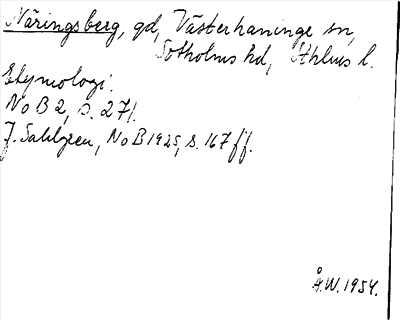 Näringsberg, gd, Västerhaninge sn,
Sotholms hd, Sthlms l.
Etymologi:
NoB 2, s. 271.
J. Sahlgren, NoB 1925, s. 167 ff.
Å.W. 1954.